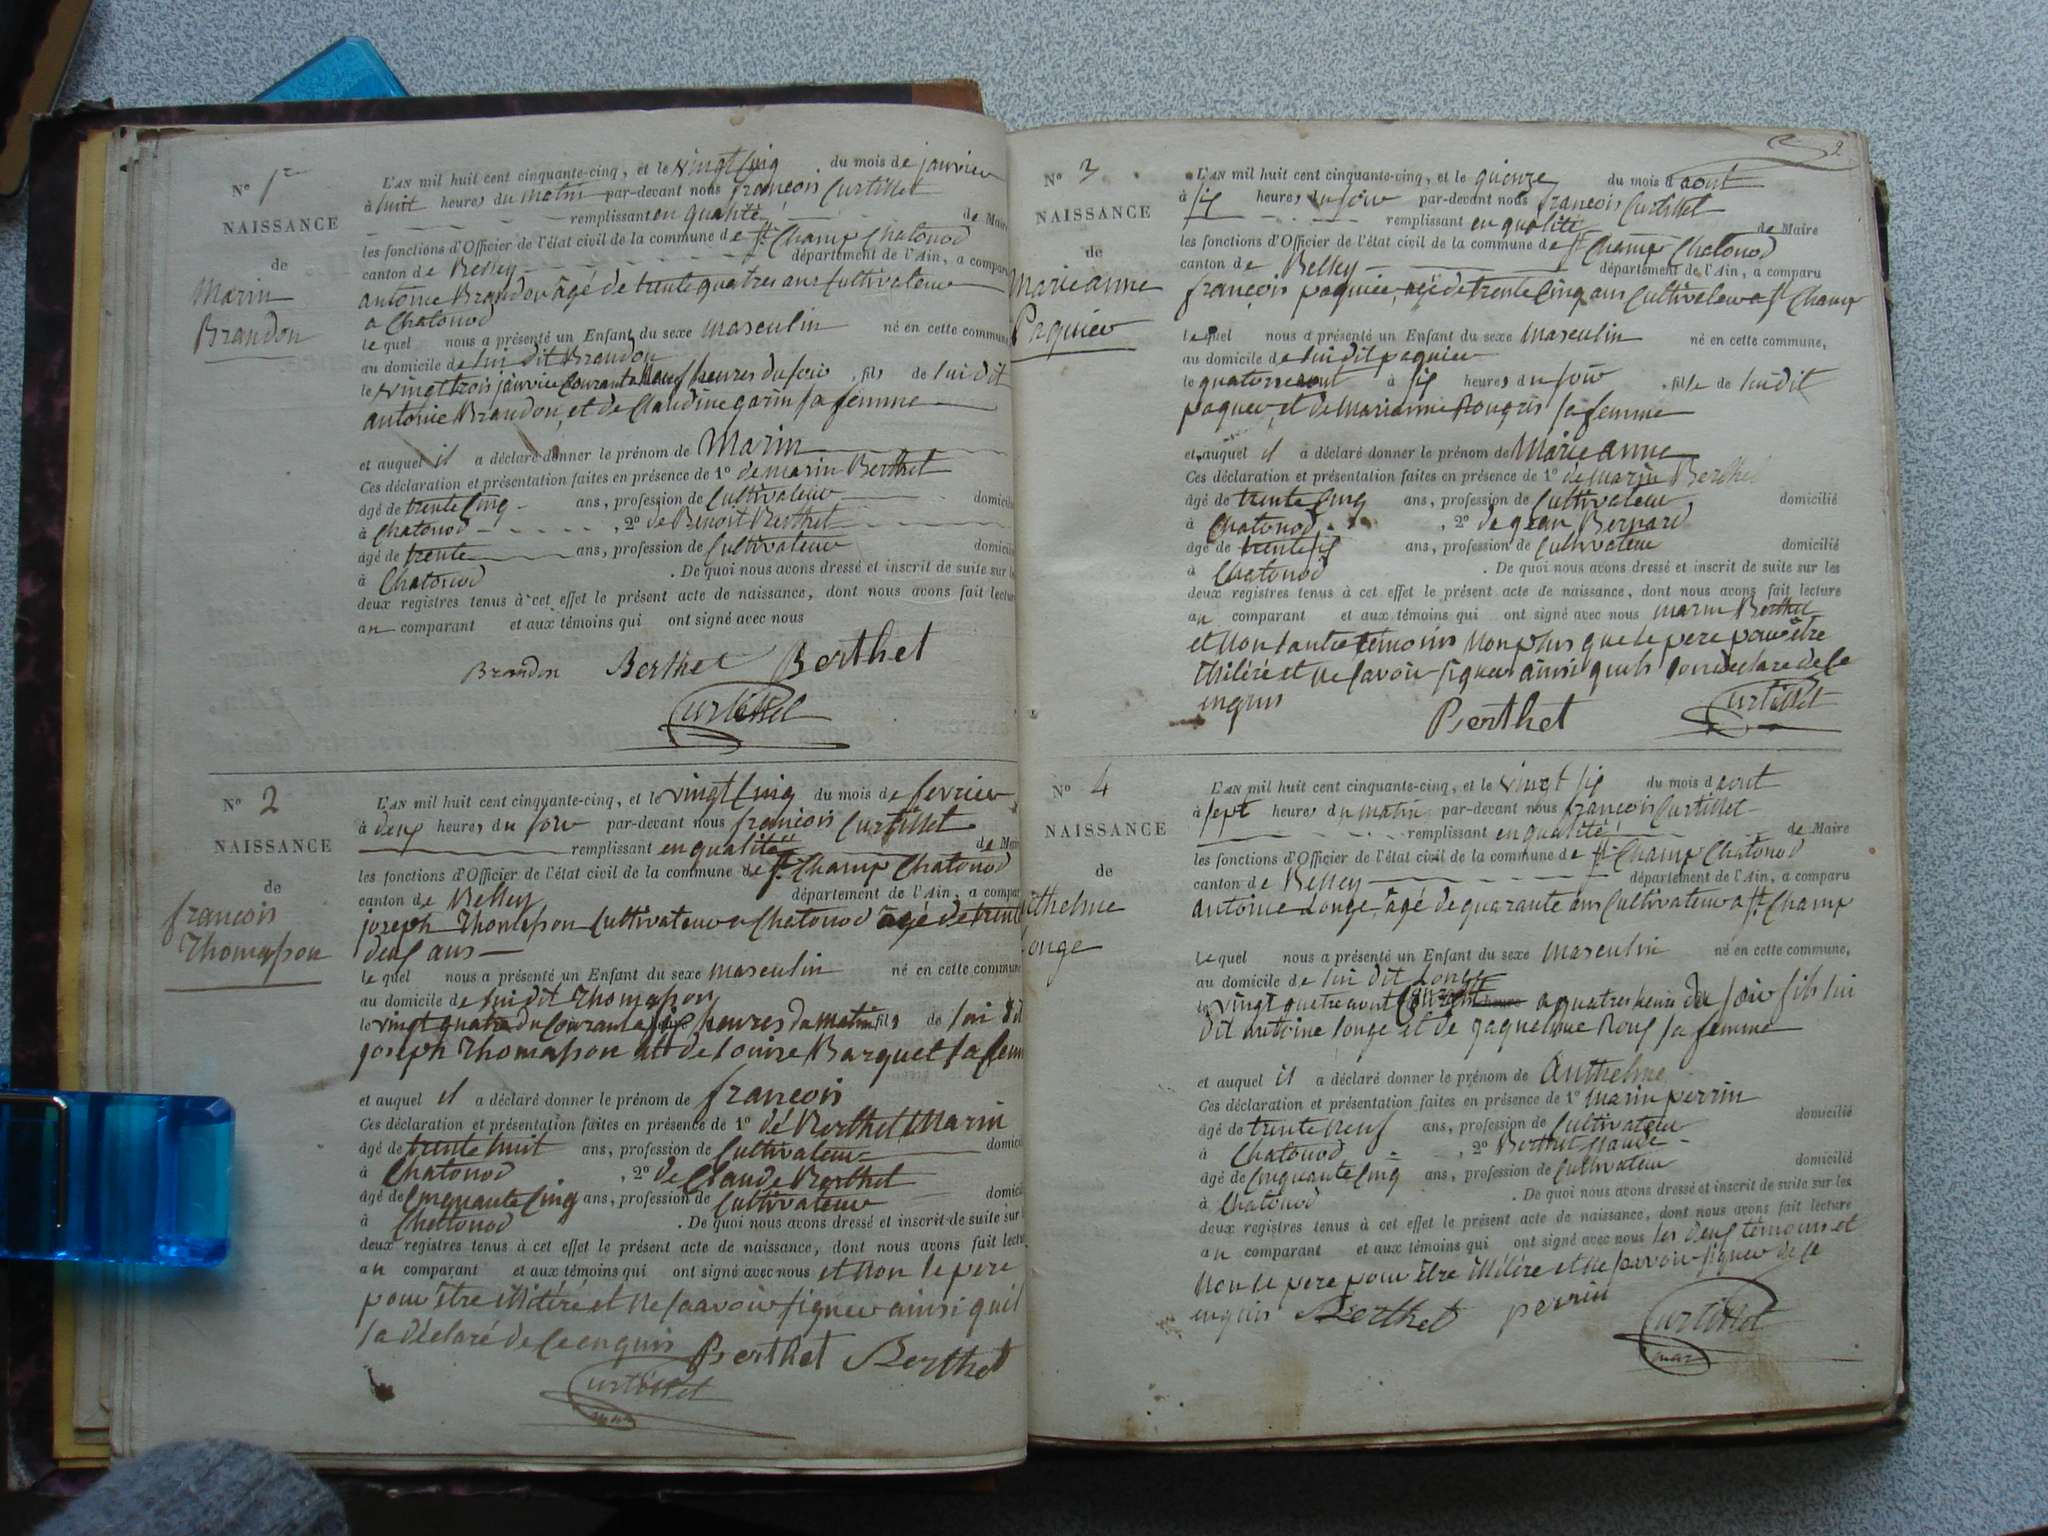 N° 1er
NAISSANCE
de
Marin
Brandon
L'AN mil huit cent cinquante-cinq, et le vingt Cinq du mois de janvier
à huit heures du matin par-devant nous francois Curtillet
remplissant en qualité de Maire
les fonctions d'Officier de l'état civil de la commune de St Champ Chatonod
canton de Belley département de l'Ain, a comparu
antoine Brandon âgé de trente quatres ans Cultivateur
a Chatonod
le quel nous a présenté un Enfant du sexe masculin né en cette commune,
au domicile de lui dit Brandon
le vingt trois janvier Courant a Neuf heures du soir fils de lui dit
antoine Brandon, et de Claudine garin sa femme
et auquel il a déclaré donner le prénom de Marin
Ces déclaration et présentation faites en présence de 1° de marin Berthet
âgé de trente Cinq ans, profession de Cultivateur domicilié
à Chatonod , 2° de Benoit Berthet
âgé de trente ans, profession de Cultivateur domicilié
à Chatonod . De quoi nous avons dressé et inscrit de suite sur les
deux registres tenus à cet effet le présent acte de naissance, dont nous avons fait lecture
au comparant et aux témoins qui ont signé avec nous
Brandon Berthet Berthet
Curtillet
N° 2
NAISSANCE
de
francois
Thomasson
L'AN mil huit cent cinquante-cinq, et le vingt Cinq du mois de fevrier
à deux heures du soir par-devant nous francois Curtillet
remplissant en qualité de Mai
les fonctions d'Officier de l'état civil de la commune de St Champ Chatonod
canton de Belley département de l'Ain, a compar
joseph Thomasson Cultivateur a Chatonod âgé de trente
deux ans
le quel nous a présenté un Enfant du sexe masculin né en cette commune
au domicile de lui dit Thomasson
le vingt quatre du Courant a six heures du matin fils de lui dit
joseph Thomasson et de louise Barquet sa fem
et auquel il a déclaré donner le prénom de francois
Ces déclaration et présentation faites en présence de 1° dé Berthet Marin
âgé de trente huit ans, profession de Cultivateur domici
à Chatonod , 2° de Claude Berthet
âgé de Cinquante Cinq ans, profession de Cultivateur domici
à Chatonod . De quoi nous avons dressé et inscrit de suite sur
deux registres tenus à cet effet le présent acte de naissance, dont nous avons fait lectu
au comparant et aux témoins qui ont signé avec nous et Non le pere
pour être illitéré et ne saavoir signer ainsi quil
la déclaré de Ce enquis Berthet Berthet
Curtillet
mar
2
N° 3
NAISSANCE
de
Marie anne
Paquier
L'AN mil huit cent cinquante-cinq, et le quinze du mois d aout
à six heures du soir par-devant nous francois Curtillet
remplissant en qualité de Maire
les fonctions d'Officier de l'état civil de la commune de St Champ Chatonod
canton de Belley département de l'Ain, a comparu
françois paquier, agé de trente Cinq ans Cultivateur a St Champ
le quel nous a présenté un Enfant du sexe masculin né en cette commune,
au domicile de lui dit paquier
le quatorze aout à six heures du soir fille de lui dit
paquier, et de marianne Rougris sa femme
et auquel il a déclaré donner le prénom de Marie anne
Ces déclaration et présentation faites en présence de 1° de marin Berthet
âgé de trente Cinq ans, profession de Cultivateur domicilié
à Chatonod , 2° de jean Bernard
âgé de trente six ans, profession de Cultivateur domicilié
à Chatonod . De quoi nous avons dressé et inscrit de suite sur les
deux registres tenus à cet effet le présent acte de naissance, dont nous avons fait lecture
au comparant et aux témoins qui ont signé avec nous marin Berthet
et Non l autre témoins Non plus que le pere pour être
illiléré et ne savoir signer ainsi quils lon déclaré de Ce
enquis
Berthet Curtillet
N° 4
NAISSANCE
de
nthelme
longe
L'AN mil huit cent cinquante-cinq, et le vingt six du mois d aout
à sept heures du matin par-devant nous francois Curtillet
remplissant en qualité de Maire
les fonctions d'Officier de l'état civil de la commune de St Champ Chatonod
canton de Belley département de l'Ain, a comparu
antoine Longe, âgé de quarante ans Cultivateur a St Champ
le quel nous a présenté un Enfant du sexe masculin né en cette commune,
au domicile de lui dit Longe
le vingt quatre aout Courant a quatres heures du soir fils lui
dit antoine longe et de jaqueline Roux sa femme
et auquel il a déclaré donner le prénom de Anthelme
Ces déclaration et présentation faites en présence de 1° marin perrin
âgé de trente neuf ans, profession de Cultivateur domicilié
à Chatonod , 2° Berthet Claude
âgé de Cinquante Cinq ans, profession de Cultivateur domicilié
à Chatonod . De quoi nous avons dressé et inscrit de suite sur les
deux registres tenus à cet effet le présent acte de naissance, dont nous avons fait lecture
au comparant et aux témoins qui ont signé avec nous les deux témoins et
Non le pere pour être illiléré et ne savoir signer de Ce
enquis Berthet perrin
Curtillet
mar